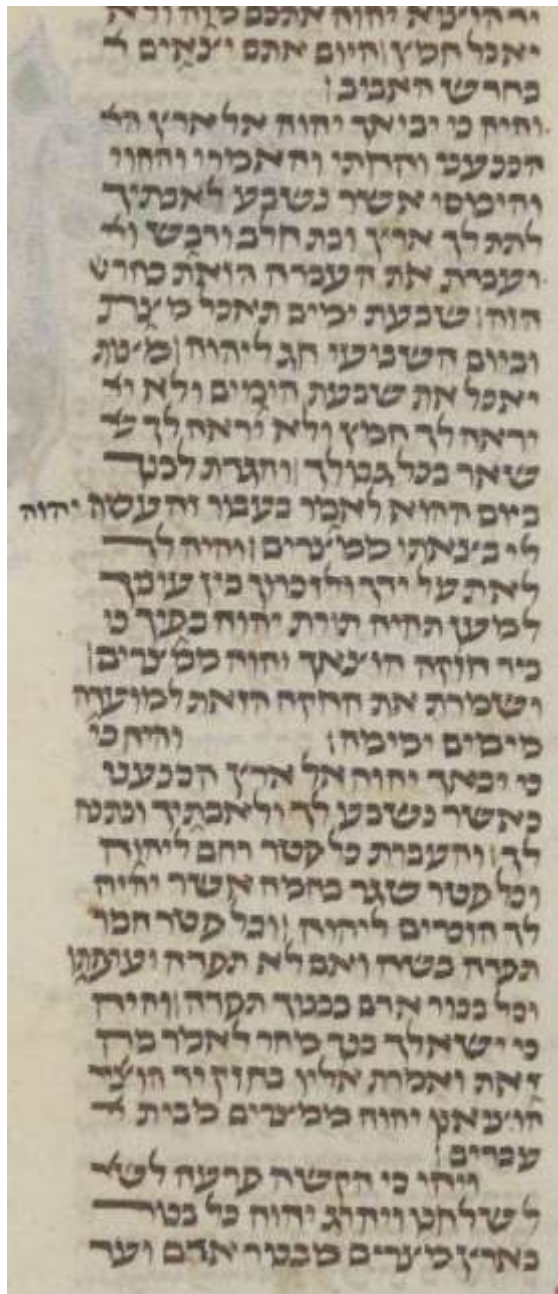 יד הוציא יהוה אתכם מזה ולא
יאכל חמץ היום אתם יצאים
בחדש האביב
והיה כי יביאך יהוה אל ארץ הכ
הכנעני והחתי והאמרי והחוי
והיבוסי אשר נשבע לאבתיך
לתת לך ארץ זבת חלב ודבש וע
ועבדת את העבדה הזאת בחדש
הזה שבעת ימים תאכל מצת
וביום השביעי חג ליהוה מצות
יאכל את שבעת הימים ולא י
יראה לך חמץ ולא יראה לך ש
שאר בכל גבולך והגדת לבנך
ביום ההוא לאמר בעבור זה עשה יהוה
לי בצאתי ממצרים והיה לך
לאת על ידך ולזכרון בין עיניך
למען תהיה תורת יהוה בפיך כי
ביד חזקה הוצאך יהוה ממצרים
ושמרת את החקה הזאת למועדה
מימים ימימה והיה כי
כי יבאך יהוה אל ארץ הכנעני
כאשר נשבע לך ולאבתיך ונתנה
לך והעברת כל פטר רחם ליהוה
וכל פטר שגר בהמה אשר יהיה
לך הזכרים ליהוה וכל פטר חמר
תפדה בשה ואם לא תפדה וערפתו
וכל בכור אדם בבניך תפדה והיה
כי ישאלך בנך מחר לאמר מה
זאת ואמרת אליו בחזק יד הוצי
הוציאנו יהוה ממצרים מבית
עבדים
ויהי כי הקשה פרעה לש
לשלחנו ויהרג יהוה כל בכור
בארץ מצרים מבכור אדם ועד